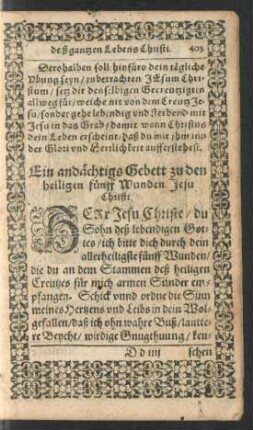 deß gantzen Lebens Christi. 403
Derohalben soll hinfüro dein tägliche
Vbung seyn / zubetrachten JEsum Chri-
stum / setz dir denselbigen Gecreutzigten
allweg für / weiche nit von dem Creutz Je-
su / sonder gehe lebendig vnd sterbend mit
Jesu in das Grab / damit wann Christus
dein Leben erscheint / daß du mit ihm inn
der Glori vnd Herrlichkeit aufferstehest.
Ein andächtigs Gebett zu den
heiligen fünff Wunden Jesu
Christi.
HERr Jesu Christe / du
Sohn deß lebendigen Got-
tes / ich bitte dich durch dein
allerheiligste fünff Wunden /
die du an dem Stammen deß heiligen
Creutzes für mich armen Sünder em-
pfangen. Schick vnnd ordne die Sinn
meines Hertzens vnd Leibs in dein Wol-
gefallen / daß ich ohn wahre Buß / lautte-
re Beycht / wirdige Gnugthuung / keu-
D d iiij schen